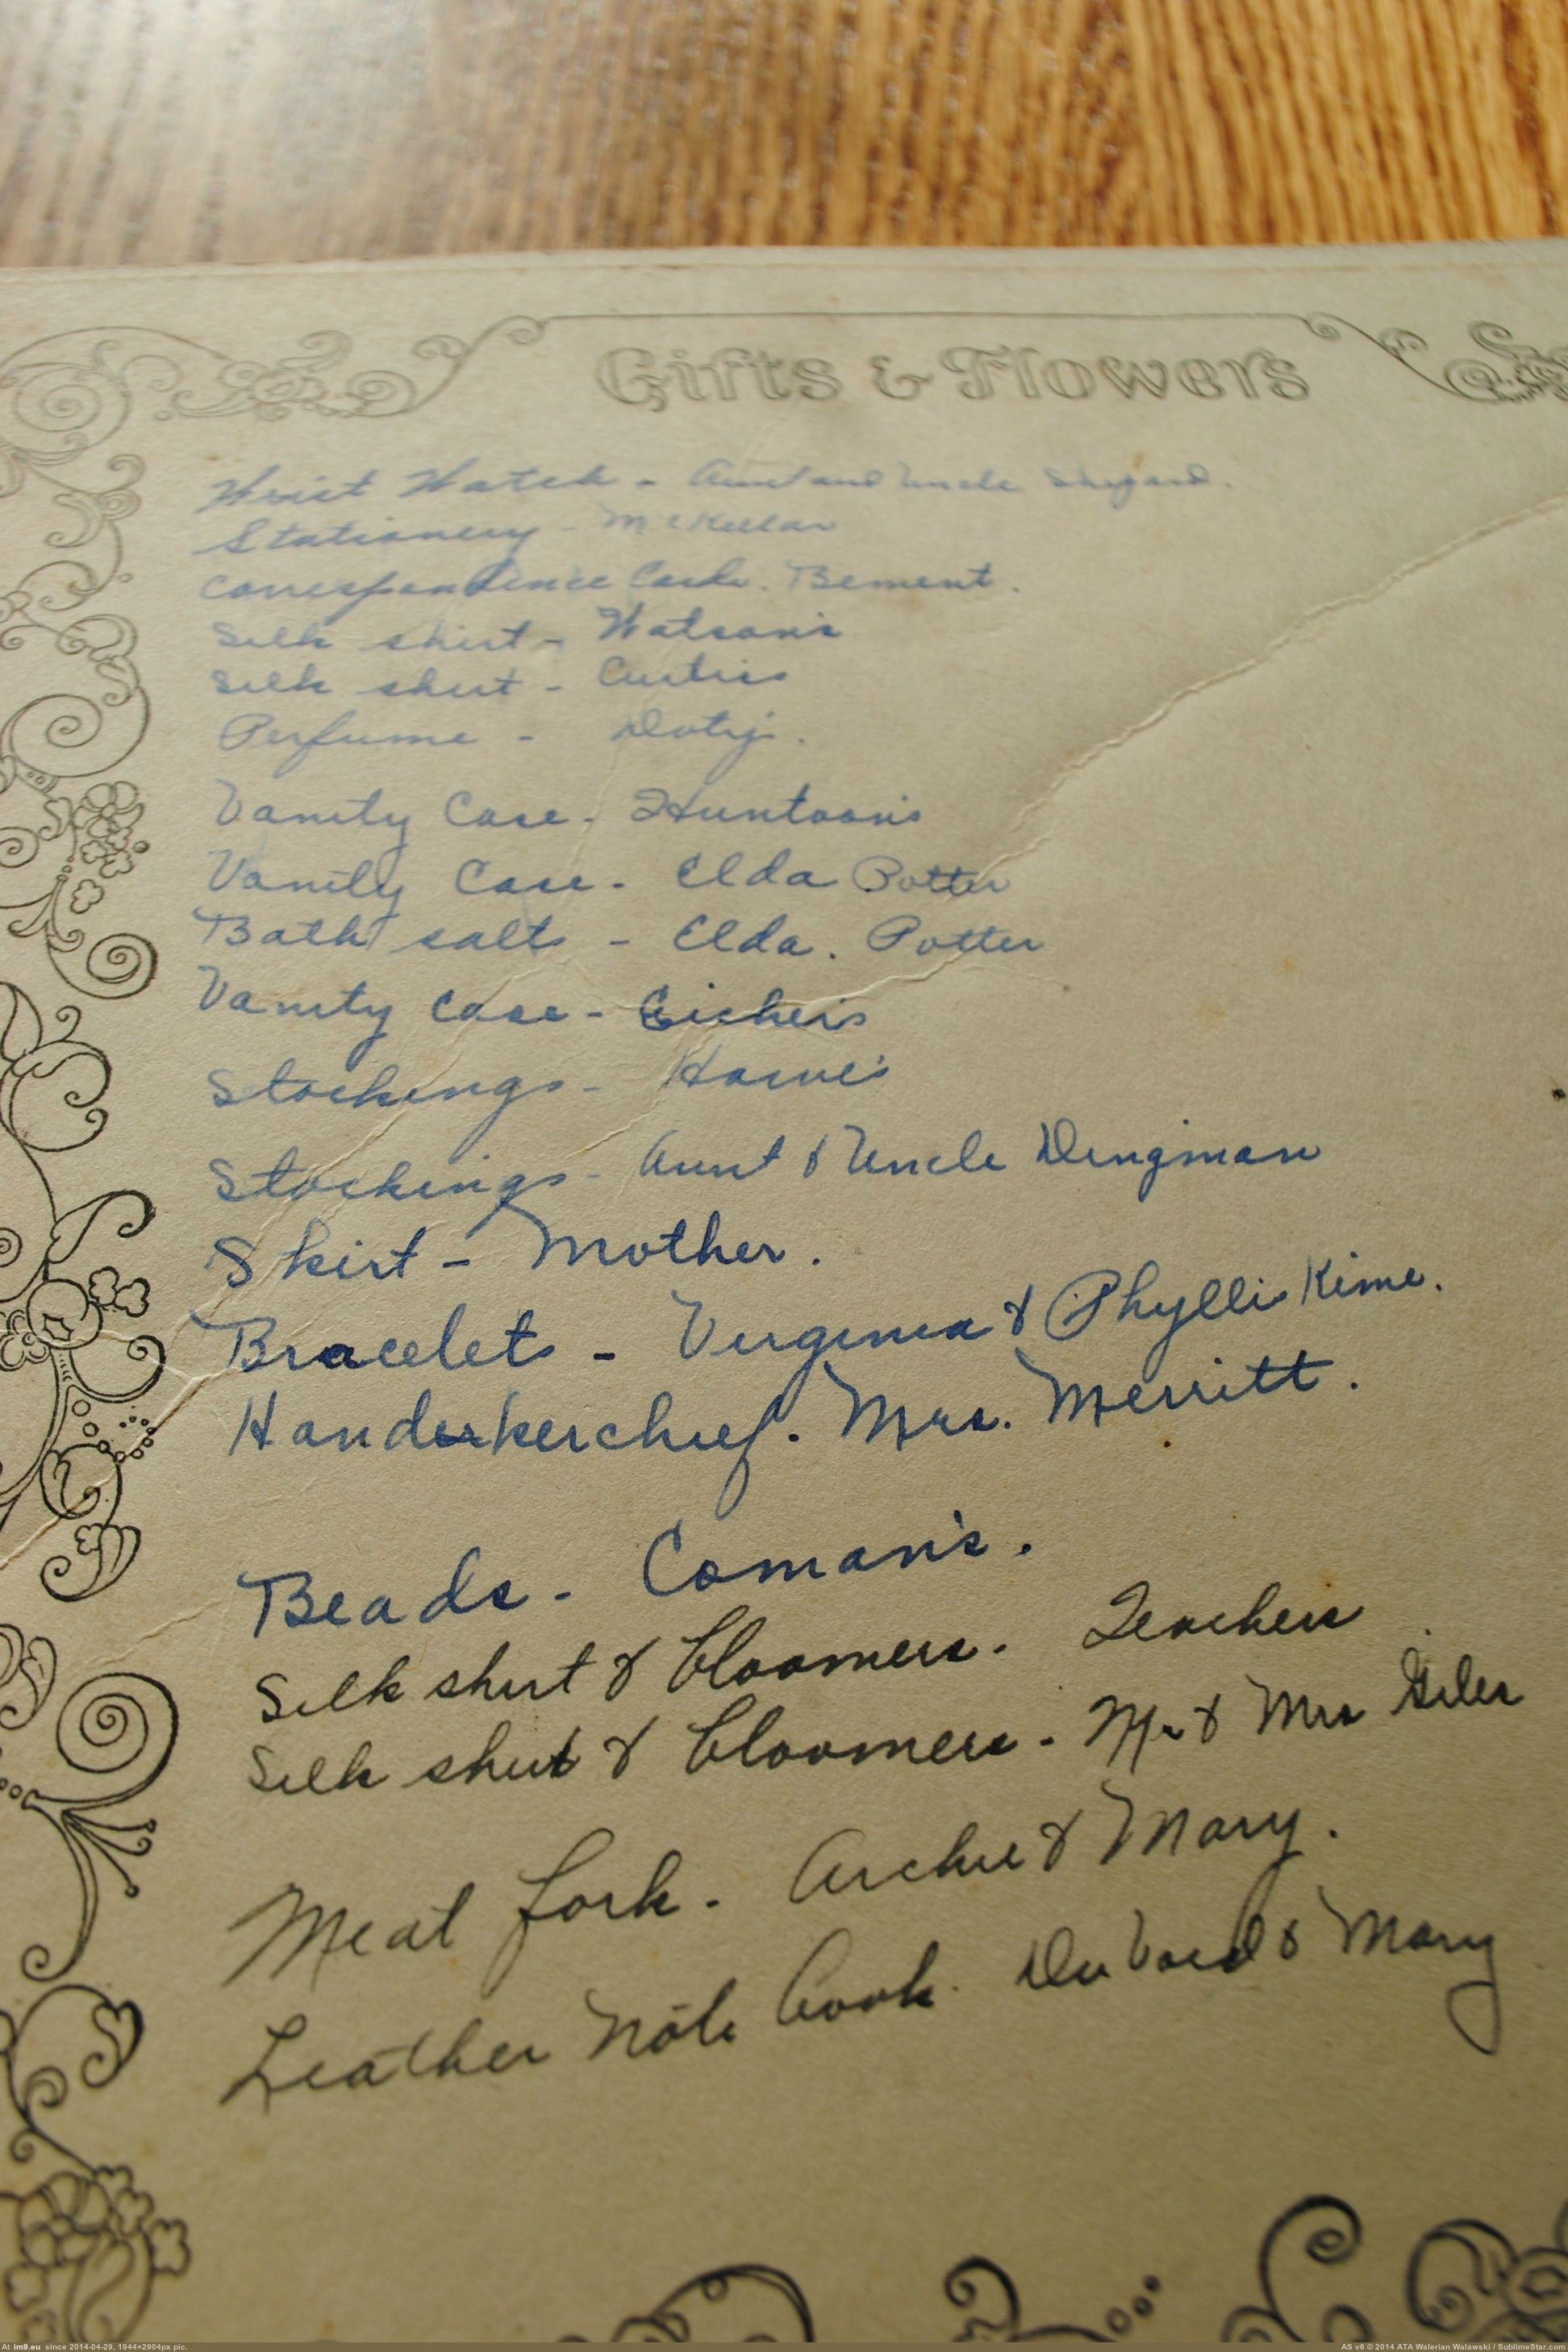 Gifts & Flowers
Wrist Watch - Aunt and Uncle
Stationery - McKellar
Correspondence Cards. Bement.
Silk shirt - Watson's
Silk shirt - Curtiss
Perfume - Doty's.
Vanity Case - Huntoon's
Vanity Case - Elda Potter
Bath salts - Elda. Potter
Vanity Case - Eicher's
Stockings - Howe's
Stockings - Aunt & Uncle Dingman
Skirt - Mother.
Bracelets - Virginia & Phyllis Kime.
Handkerchief. Mrs. Merritt.
Beads - Coman's.
Silk shirt & bloomers. Teachers
Silk shirt & bloomers - Mr & Mrs Giles
Meat fork - Archie & Mary.
Leather Note book. & Mary
At im9.eu since 2014-04-29, 1944×2904px pic. AS v6 © 2014 ATA Walerian Walawski / SublimeStar.com